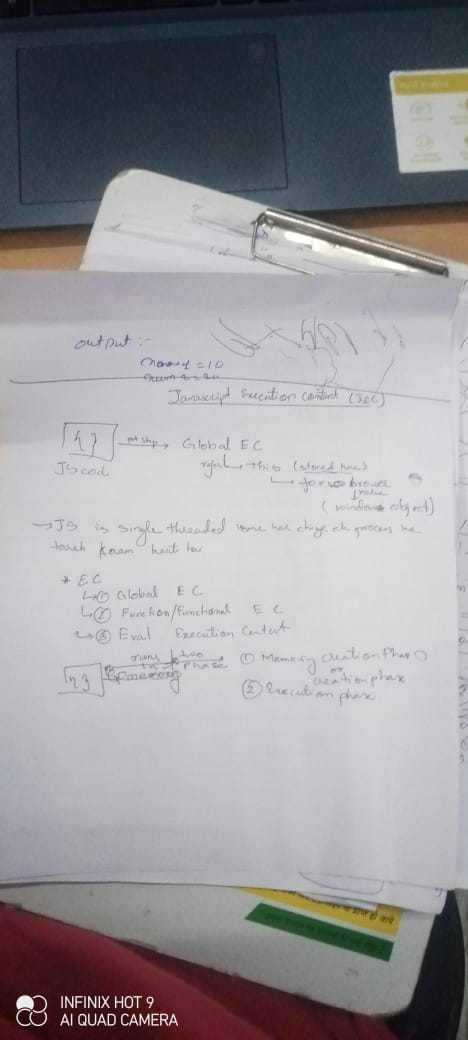 output :-
num 1 = 10
Javascript Execution Context (JEC)
{ } 1st step → Global EC
JS cod
refer → this (stored
for browser
value
(window object)
→ JS is single threaded isme har chije ek process ke
tarah kaam karti hai
* EC
↳ ① Global EC
↳ ② Function/Functional EC
↳ ③ Eval Execution Context
{ } runs in two phase → ① Memory creation Phase
or
creation phase
② Execution phase
INFINIX HOT 9
AI QUAD CAMERA